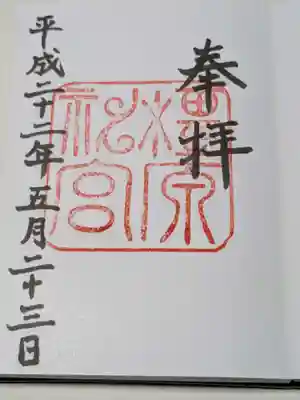 奉拝
橿原
神宮
平成二十二年五月二十三日